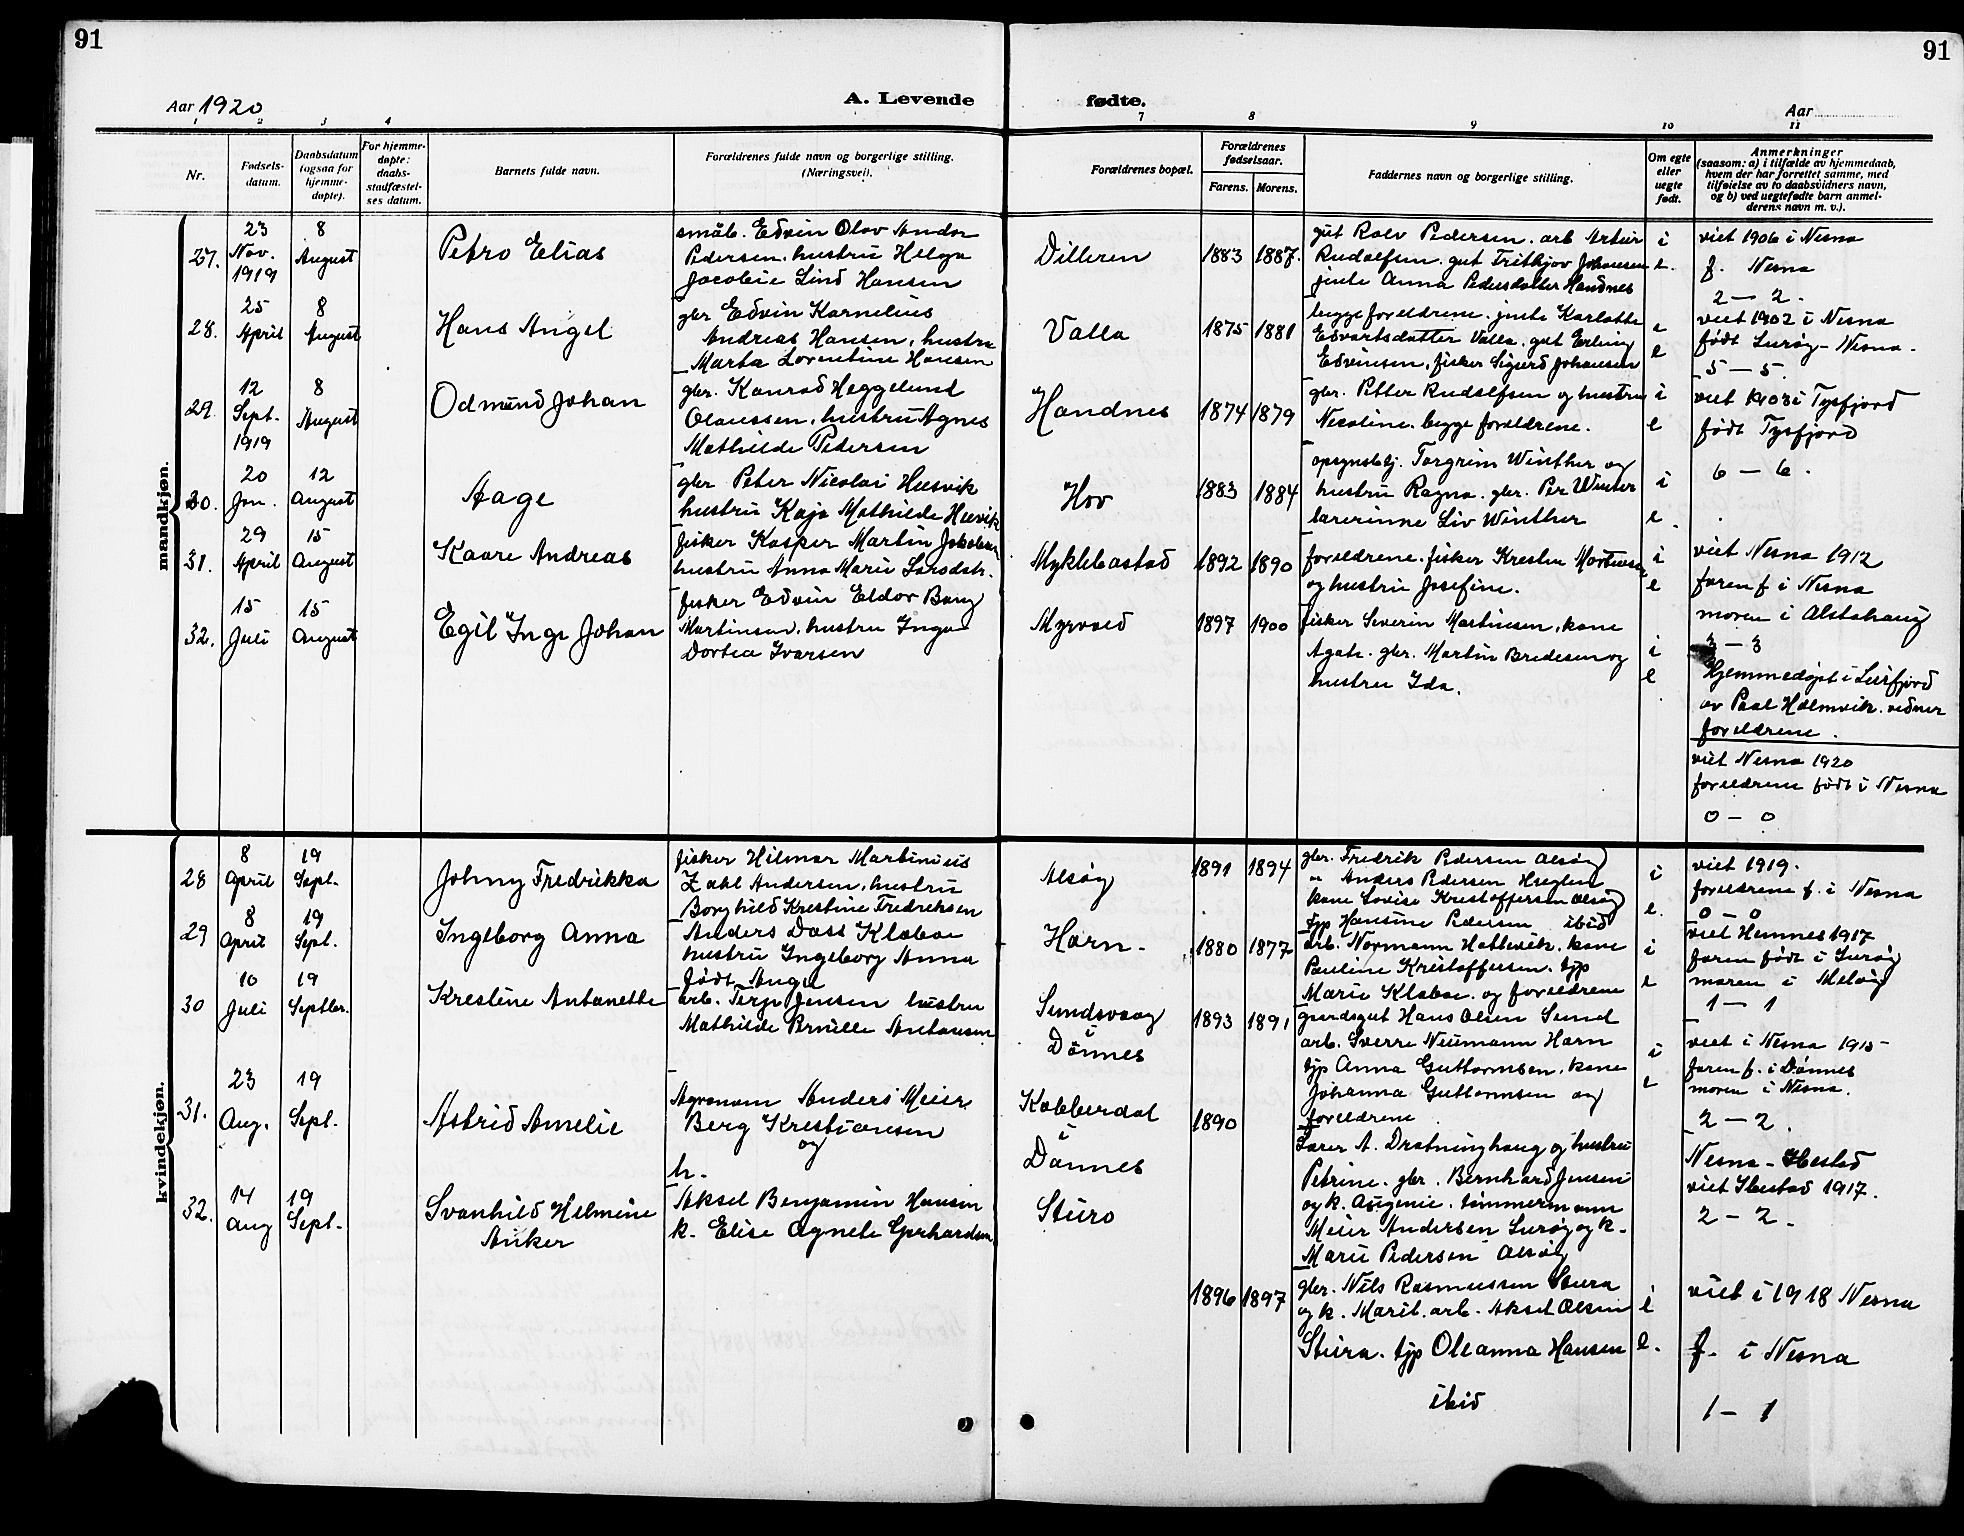 91
91
Aar 1920
A. Levende
fødte.
Aar
1 2 3 4 7 8 9 10 11
Nr.
Fødsels-
datum.
Daabsdatum
(ogsaa for
hjemme-
døpte).
For hjemme-
døpte:
daabs-
stadfæstel-
ses datum.
Barnets fulde navn.
Forældrenes fulde navn og borgerlige stilling.
(Næringsvei).
Forældrenes bopæl.
Forældrenes
fødselsaar.
Farens. Morens.
Faddernes navn og borgerlige stilling.
Om egte
eller
uegte
født.
Anmerkninger
(saasom: a) i tilfælde av hjemmedaab,
hvem der har forrettet samme, med
tilføielse av to daabsvidners navn,
og b) ved uegtefødte barn anmel-
derens navn m. v.).
mandkjøn.
27.
23
Nov.
1919
8
August
Petro Elias
småb. Edvin Olov Andor
Pedersen, hustru Helga
Jacobie Lind Hansen
Dilleren
1883 1887.
gut Rolv Pedersen. arb Artur
Rudolfsen. gut Frithjov Johansen
jente Anna Pedersdatter Handnes
i
e.
viet 1906 i Nesna
f. Nesna
2 – 2.
28.
25
April
8
August
Hans Angel
gbr Edvin Kornelius
Andreas Hansen, hustru
Marta Lorentine Hansen
Valla
1875 1881
begge foreldrene. jente Karlotte
Edvartsdatter Valla. gut Erling
Edvinsen, fisker Sigurd Johansen
e
e
viet 1902 i Nesna
født Lurøy – Nesna.
5 – 5.
29.
12
Sept.
1919
8
August
Odmund Johan
gbr. Konrad Heggelund
Olaussen, hustru Agnes
Mathilde Pedersen
Handnes
1874 1879
gbr. Petter Rudolfsen og hustru
Nicoline. begge foreldrene.
i
e
viet 1903 i Tysfjord
født Tysfjord
6 – 6.
30.
20
Jan.
12
August
Aage
gbr Peter Nicolai Husvik
hustru Kaja Mathilde Husvik
Hov
1883 1884
opsynsbtj. Torgrim Winther og
hustru Ragna. gbr. Per Winter
lærerinne Liv Winther
i
e.
31.
29
April
15
August
Kaare Andreas
fisker Kasper Martin Jakobsen
hustru Anna Marie Larsdatr.
Myklebostad
1892 1890
foreldrene. fisker Kresten Mortensen
og hustru Josefine.
i
e
viet Nesna 1912
faren f i Nesna
moren i Alstahaug
3 – 3
32.
15
Juli
15
August
Egil Inge Johan
fisker Edvin Eldor Berg
Martinsen, hustru Inga
Dortea Ivarsen
Myrvold
1897 1900
fisker Severin Martinsen, kone
Agate. gbr. Martin Bredesen og
hustru Ida.
i
e
Hjemmedøpt i Leirfjord
av Paal Holmvik. vidner
foreldrene.
viet Nesna 1920
foreldrene født i Nesna
0 – 0
kvindekjøn.
28
8
April
19
Sept.
Johny Fredrikka
fisker Hilmar Martinius
Zahl Andersen, hustru
Borghild Kristine Fredriksen
Alsøy
1891 1894
gbr. Fredrik Pedersen Alsøy
" Anders Pedersen
kone Lovise Kristoffersen Alsøy
typ Hansine Pedersen ibid
i
e.
viet 1919.
foreldrene f. i Nesna
0 – 0
29
8
April
19
Sept.
Ingeborg Anna
Anders Dass Klæboe
hustru Ingeborg Anna
født Angel
Horn.
1880 1877
arb. Normann Hattevik. kone
Pauline Kristoffersen, typ
Marie Klæboe. og foreldrene
i
e
viet Hemnes 1917
faren født i Lurøy
moren i Meløy
1 – 1
30
10
Juli
19
Septbr.
Krestine Antonette
arb. Terje Jensen hustru
Mathilde Pernille Antonsen
Sundsvaag
i
Dönnes
1893 1891
gaardsgut Hans Olsen Sund
arb. Sverre Neumann Horn
typ Anna Guttormsen. kone
Johanna Guttormsen og
foreldrene
i
e
viet i Nesna 1915
faren f. i Dönnes
moren i Nesna.
2 – 2.
31.
23
Aug.
19
Sept.
Astrid Amelie
Agronom Anders Meier
Berg Krestiansen
og
h.
Kobberdal
i
Dønnes
1890
Lærer A. Drotninghaug og hustru
Petrine. gbr. Bernhard Jensen
og k. Augenie. tömmermann
Meier Andersen Lurøy og k.
Marie Pedersen Alsøy
Nesna – Ibestad
viet Ibestad 1917.
2 – 2.
32.
14
Aug
19
Sept.
Svanhild Helmine
Anker
Aksel Benjamin Hansen
k. Elise Agnete Gerhardsen
Stura
1896 1897
gbr. Nils Rasmussen Stura
og k. Marit. arb. Aksel Olsen
Stura. typ Oleanna Hansen
ibid
i
e.
viet i 1918 Nesna
f. i Nesna
1 – 1